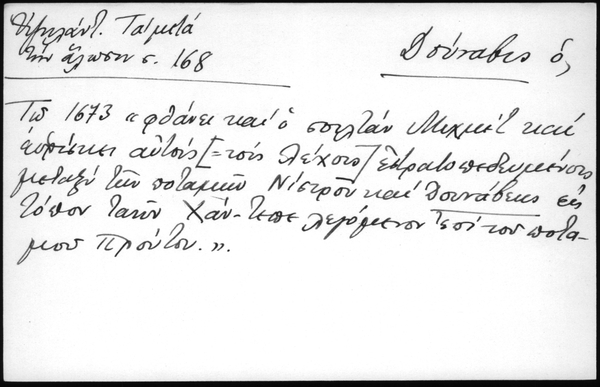 Ὑψηλάντ. Τὰ μετὰ
τὴν ἅλωσιν σ. 168
Δούναβις ὁ,
Τῷ 1673 « φθάνει καὶ ὁ σουλτὰν Μεχμὲτ καὶ
εὑρίσκει αὐτοὺς [=τοὺς Λέχους] ἐστρατοπεδευμένους
μεταξὺ τῶν ποταμῶν Νίστρου καὶ Δουνάβεως εἰς
τόπον Χάν-τεπε λεγόμενον ἐπὶ τοῦ ποτα-
μοῦ Προύτου. ».